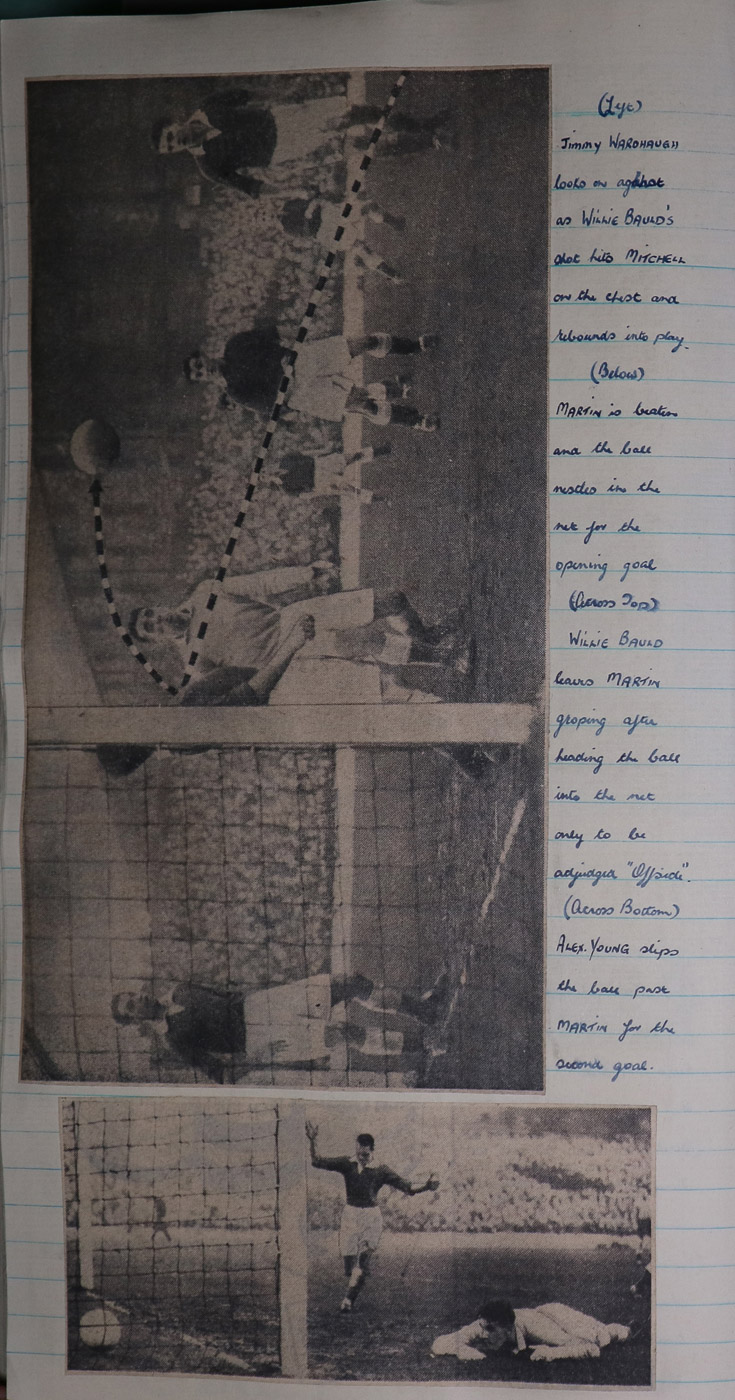 (Left)
Jimmy WARDHAUGH
looks on aghast
as WILLIE BAULD'S
shot hits MITCHELL
on the chest and
rebounds into play.
(Below)
MARTIN is beaten
and the ball
nestles in the
net for the
opening goal
(Across Top)
WILLIE BAULD
leaves MARTIN
groping after
heading the ball
into the net
only to be
adjudged "Offside".
(Across Bottom)
ALEX. YOUNG slips
the ball past
MARTIN for the
second goal.